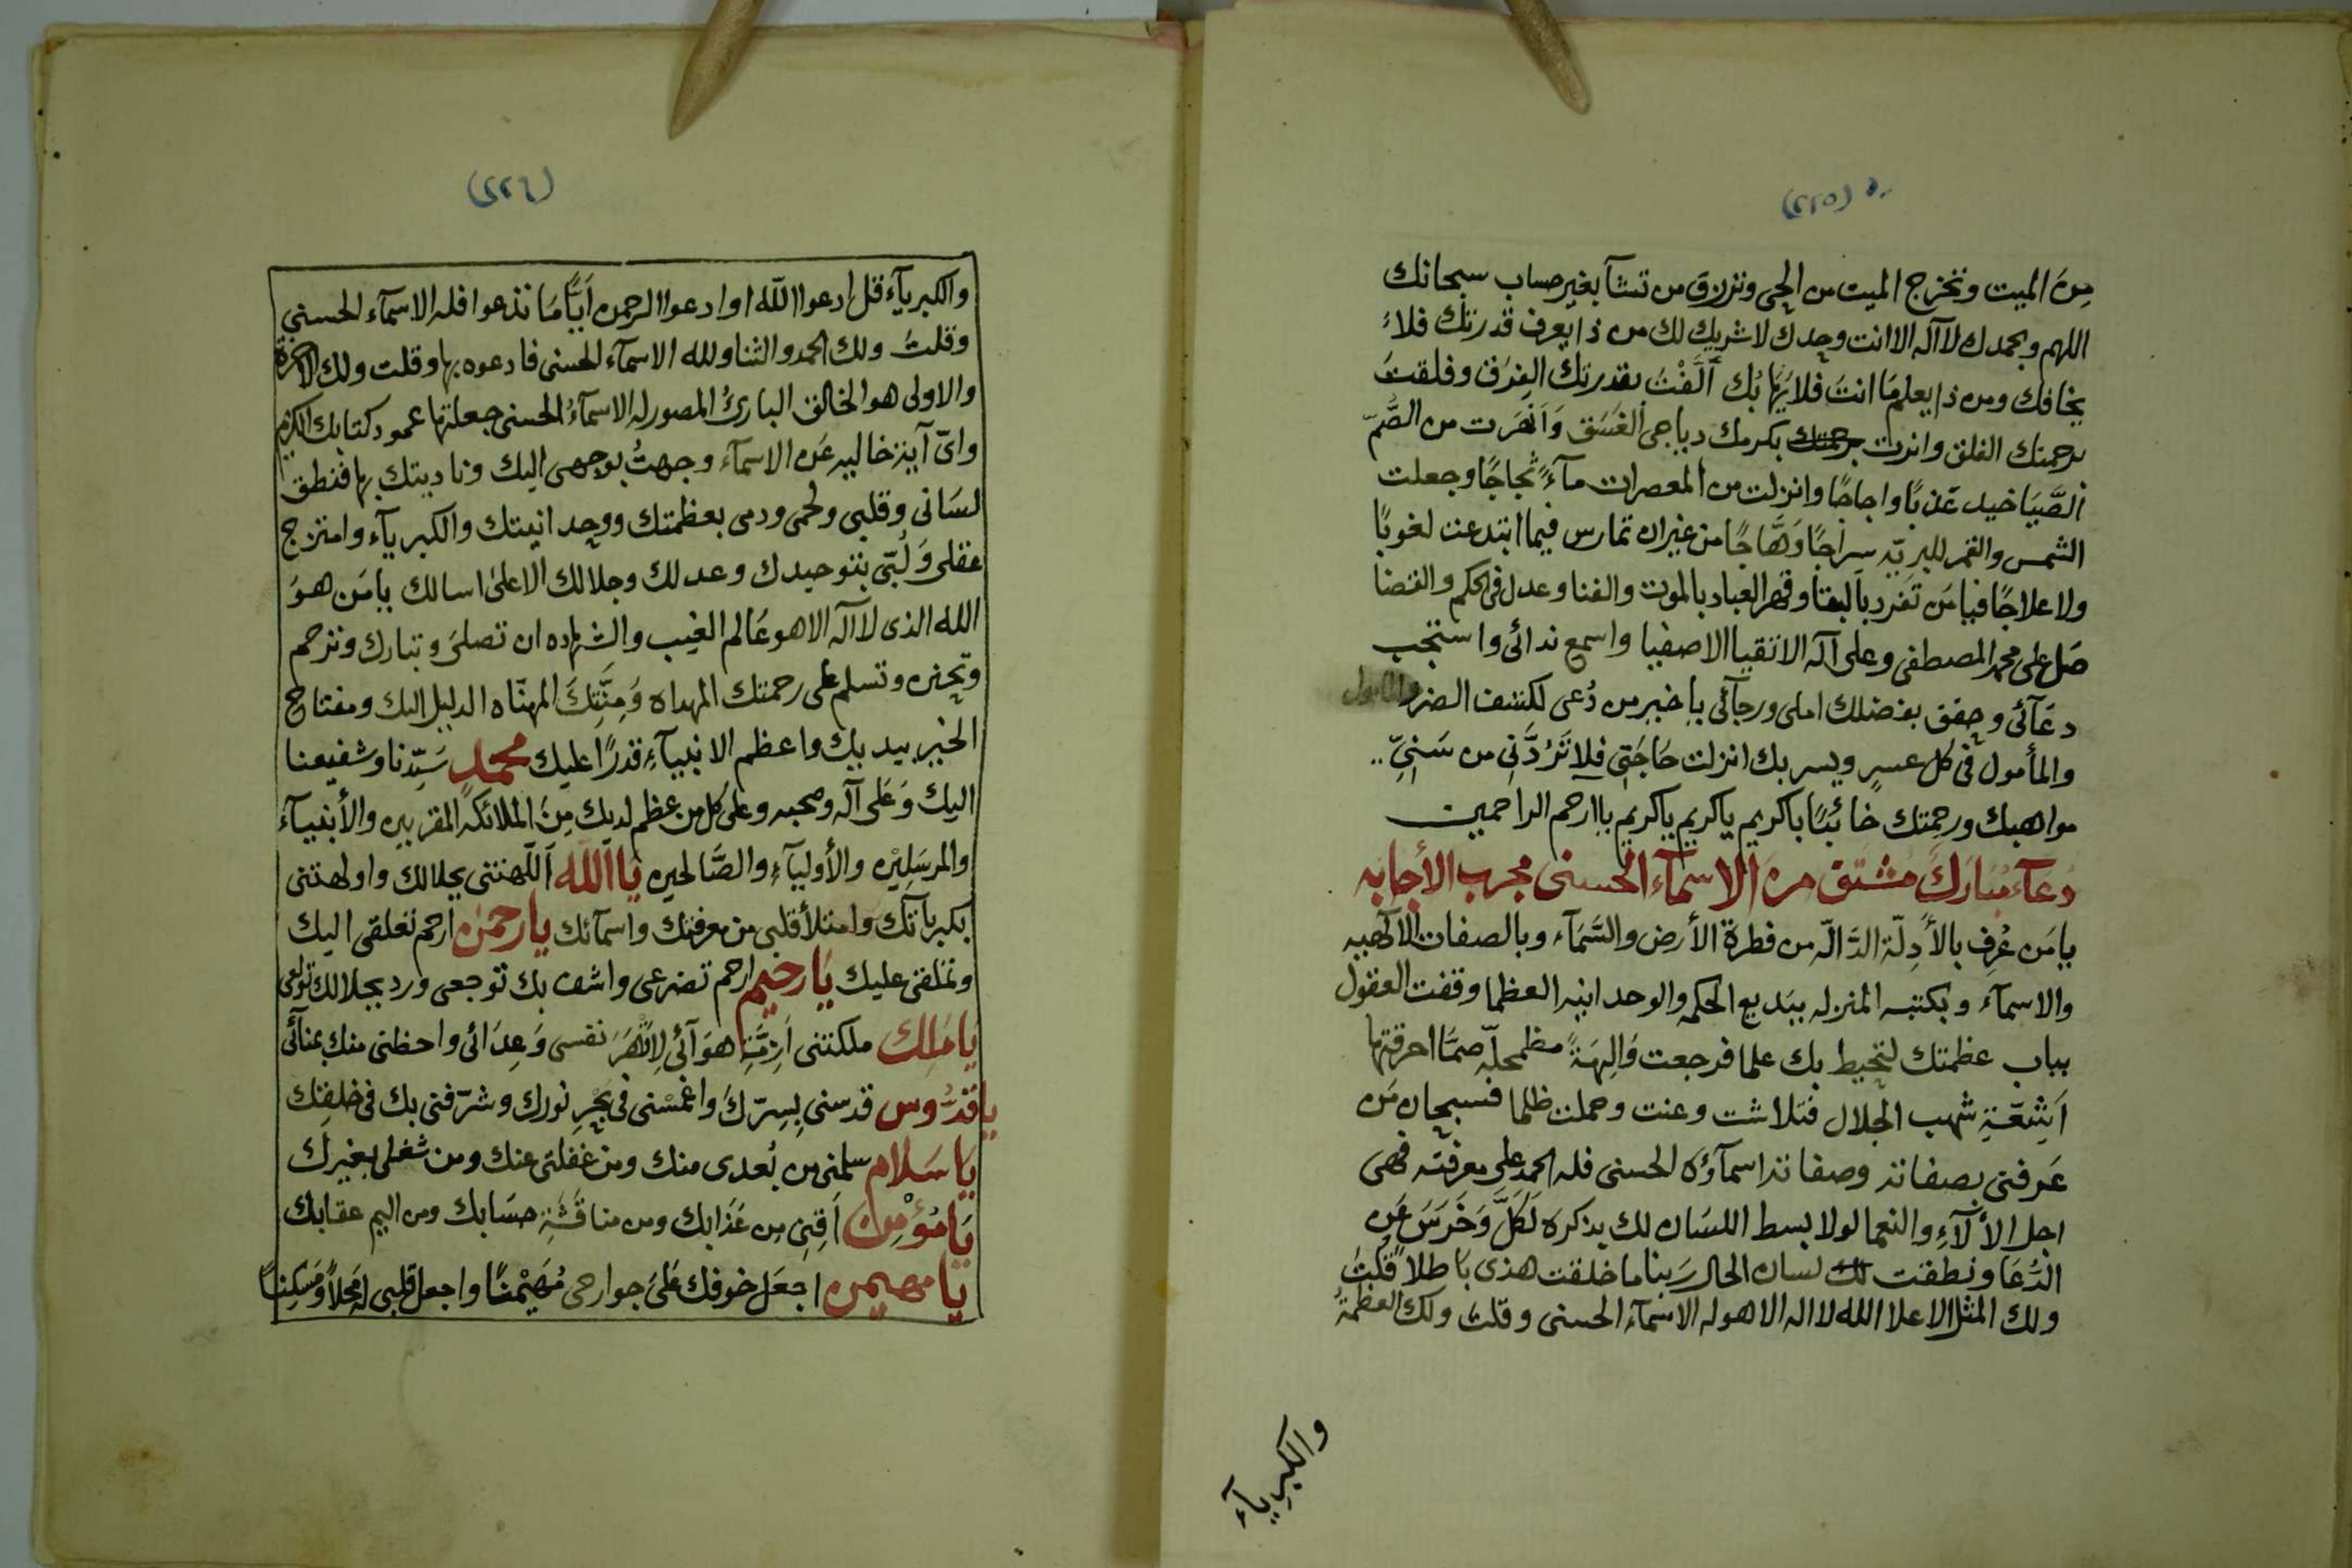 (٢٢٥)
مِنَ الميت وتخرج الميت من الحي وترزق من تشآ بغير حساب سبحانك
اللهم وبحمدك لا آله الا انت وحدك لا شريك لك من ذا يعرف قدرتك فلا
يخافك ومن ذا يعلم مَا انتَ فلا يَهَابُك أَلَّفْتَ بقدرتك الفِرَق وفلقتَ
برحمتك الفلق وانرت برحمتك بكرمك دياجى الغَسَق وَاَنْهَرت من الصُّمّ
الصَّيَاخيد عَذبًا واجاجًا وانزلت من المعصرات مآءً ثجاجًا وجعلت
الشمس والقمر للبريّه سِرَاجًا وَهَّاجًا من غير ان تمارس فيما ابتدعت لغوبًا
ولا علاجًا فيا مَن تفرد بالبقا وقهر العباد بالموت والفنا وعدل فى الحكم والقضا
صَل على محمد المصطفى وعلى آله الاتقيا الاصفيا واسمع ندائى واستجب
دعَآئى وحقق بفضلك املى ورجآئى يا خير من دُعى لكشف الضر
والمأمول فى كل عسرٍ ويسر بك انزلت حَاجَتِى فلا تَرُدَّنِى من سَنِىِّ ..
مواهبك ورحمتك خائبًا يا كريم يا كريم يا كريم يا ارحم الراحمين
دُعَآء مُبَارَك مُشتق مِنَ الاسمآء الحسنى مجرب الأجابه
يا مَن عُرِف بالأَدِلّة الدَّالّه من فطرة الأرض والسَّمَآء وبالصفات الآلهيه
والاسمآء وبكتبه المنزله ببَديع الحكمه والوحدانيه العظما وقفت العقول
بباب عظمتك لتحيط بك علما فرجعت وَالِهَةً مظمحلّه صمَّا احرقتها
اَشِعَّةِ شهب الجلال فتلاشت وعنت وحملت ظلما فسبحان مَن
عَرفنى بصفاته وصفاته اسمآؤه الحسنى فله الحمد على معرفته فهى
اجل الألآءِ والنعما لولا بسط اللسَان لك بذكره لَكَلَّ وَخَرَسَ عَن
الدُّعَا ونطقت لك لسان الحال رَبنا ما خلقت هذى بَاطلاً قُلتَ
ولك المثل الاعلا الله لا اله الا هو له الاسمآء الحسنى وقلت ولك العظمةُ
والكبريآءِ
(٢٢٦)
والكبريآء قل ادعوا اللّه او ادعوا الرحمن اَيًّا مَا تدعوا فله الاسمآء الحسنى
وقلتُ ولك الحمد والثنا ولله الاسمآء الحسنى فادعوه بها وقلت ولك الآخرة
والاولى هو الخالق البارئُ المصور له الاسمآءُ الحسنى جعلتها عمود كتابك الكريم
واىّ آيةٍ خاليه عَن الاسمآء وجهتُ بوجهى اليك وناديتك بها فنطق
لسَانى وقلبى ولحمى ودمى بعظمتك ووحدانيتك والكبريآء وامتزج
عقلى وَلُبّى بتوحيدك وعدلك وجلالك الاعلىٰ اسالك يا مَن هوَ
الله الذى لا آله الا هو عَالم الغيب والشهاده ان تصلىَ وتبارك وترحم
وتحنن وتسلم على رحمتك المهداه وَمِنَّتِكَ المهنّاه الدليل اليك ومفتاح
الخير بيديك واعظم الانبيآءِ قدرًا عليك محمد سَيِّدنا وشفيعنا
اليك وَعَلى آله وصحبه وعلى كل من عظم لديك مِنَ الملائكه المقربين والأنبيآء
والمرسَلِيْن والأوليآءِ والصَّالحين يَا اَللّه اَللّهنتنى بجلالك واولهتنى
بكبريآئك وامتلأ قلبى من معرفتك واسمآئك يا رحمٰن ارحم تعلقى اليك
وتملقى عليك يَا رحيم ارحم تضرعى واشف بك توجعى ورد بجلالك تولعى
يَا مَلِك ملكتنى اَزِمَّةِ هوَآئى لِأَقْهَرَ نفسى وَعِدَائى واحظنى منك بمنآئى
يا قدُّوس قدسنى بِسِرّكَ واغمسْنى فى بَحْرِ نورك وشرّفنى بك فى خلقِك
يَا سَلام سلمنى من بُعدى منك ومن غفلتى عنك ومن شغلى بغيرك
يَا مُؤْمِن اَمِّنِى مِن عَذابك ومن مناقَشَةِ حسَابك ومن اليم عقابك
يَا مهيمن اجعَل خوفك عَلىَ جوارحى مُهَيْمنًا واجعل قلبى له مَحلاًّ وَمَسكِنًا